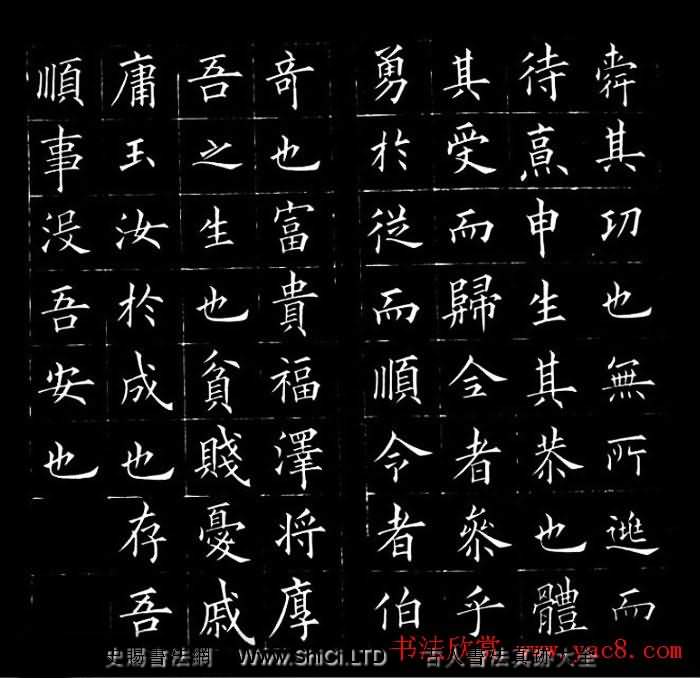 舜其功也無所逃而
待烹申生其恭也體
其受而歸全者參乎
勇於從而順令者伯
奇也富貴福澤将厚
吾之生也貧賤憂戚
庸玉汝於成也存吾
順事没吾安也
书法欣赏 www.yac8.com
史賜書法網 WWW.ShiCi.LTD 古人書法真跡大全